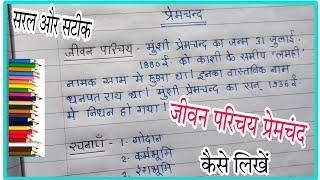 सरल और सटीक
प्रेमचन्द
जीवन परिचय - मुंशी प्रेमचन्द का जन्म 31 जुलाई,
1880 ई. को काशी के समीप 'लमही'
नामक ग्राम में हुआ था। इनका वास्तविक नाम
धनपत राय था। मुंशी प्रेमचन्द का सन् 1936 ई.
में निधन हो गया।
जीवन परिचय प्रेमचंद
रचनाएँ - 1- गोदान
2- कर्मभूमि
3- रंगभूमि
कैसे लिखें